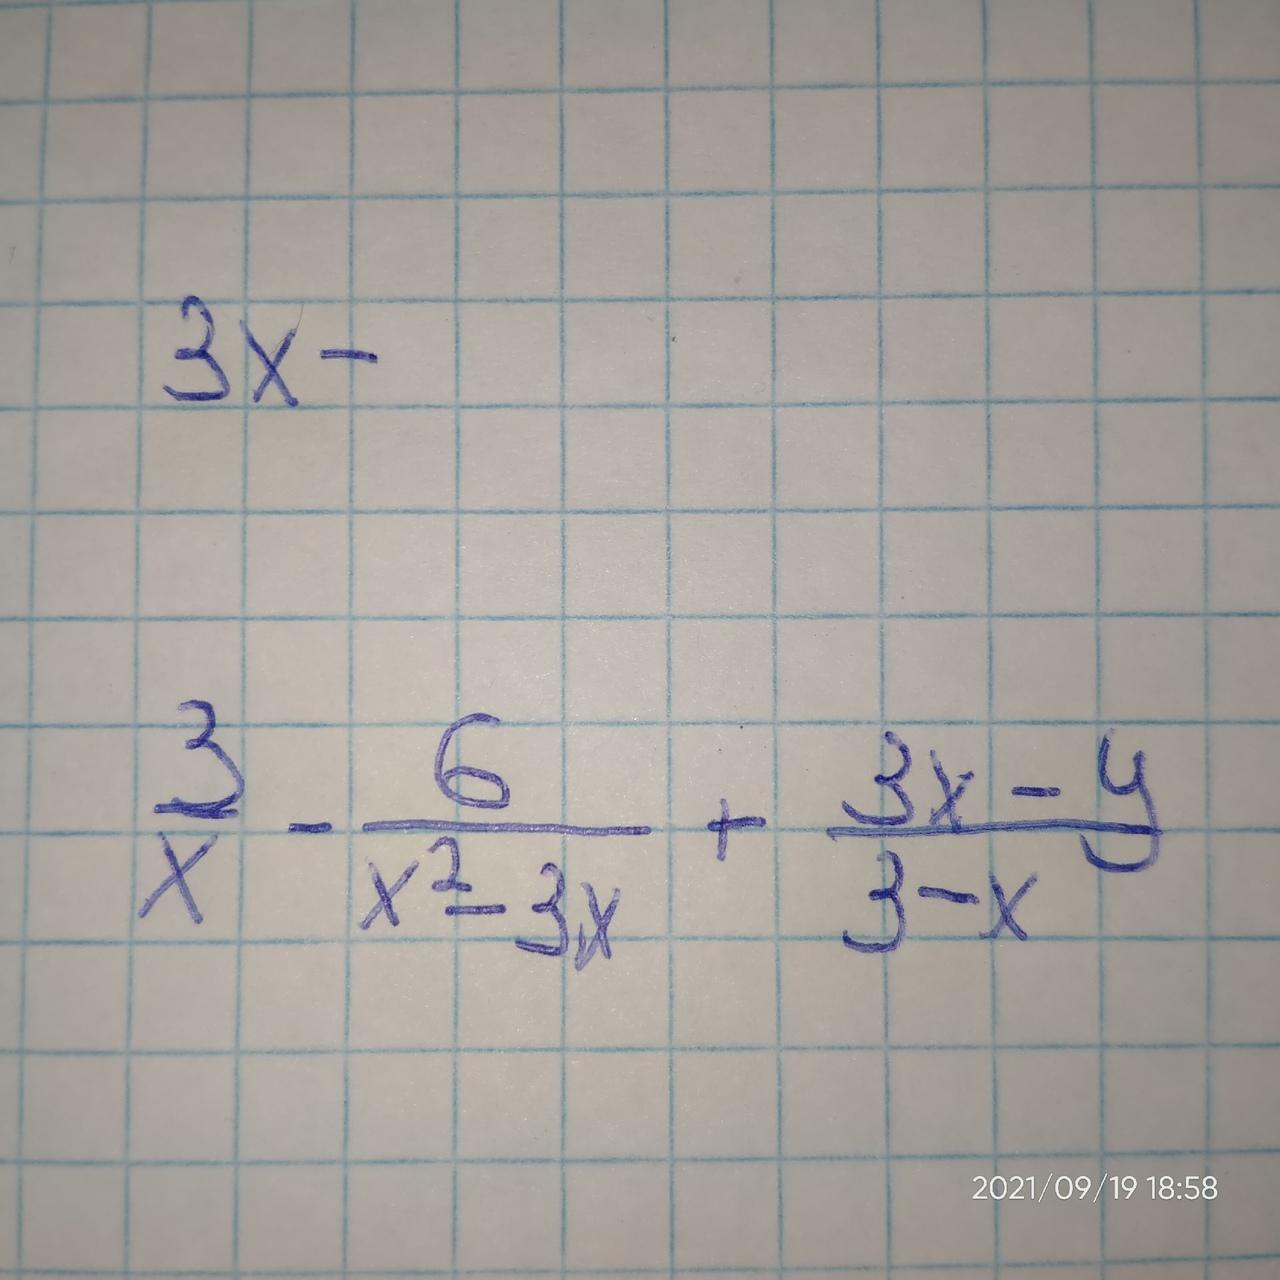 3x -
3/x - 6/(x² - 3x) + (3x - y)/(3 - x)
2021/09/19 18:58